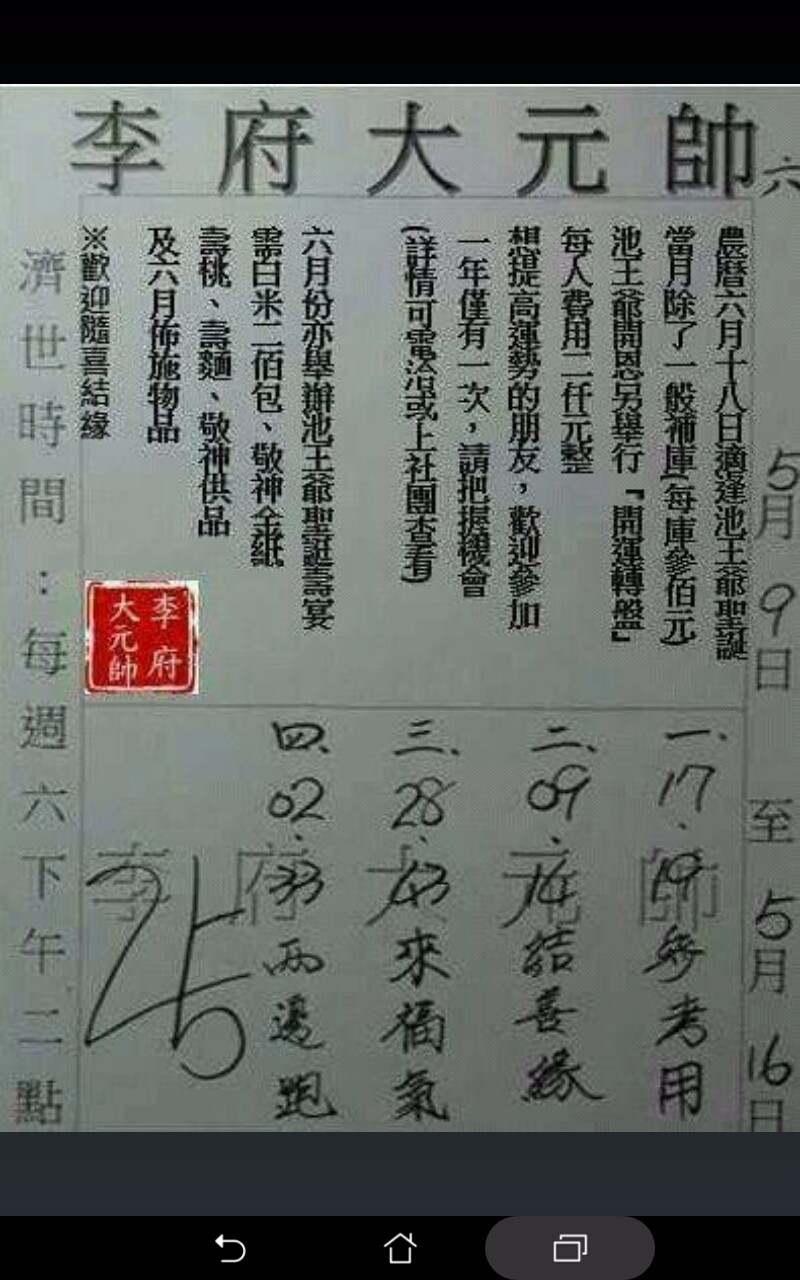 李府大元帥
六
5月9日 至 5月16日
農曆六月十八日適逢池王爺聖誕
當月除了一般補庫(每庫參佰元)
池王爺開恩另舉行「開運轉盤」
每人費用二仟元整
想提高運勢的朋友，歡迎參加
一年僅有一次，請把握機會
(詳情可電洽或上社團查看)
六月份亦舉辦池王爺聖誕壽宴
需白米二佰包、敬神金紙
壽桃、壽麵、敬神供品
及六月佈施物品
※歡迎隨喜結緣
李府
大元帥
一、17.19參考用
二、09.14結善緣
三、28.43來福氣
四、02.33兩邊跑
25
李府大元帥
濟世時間：每週六下午二點